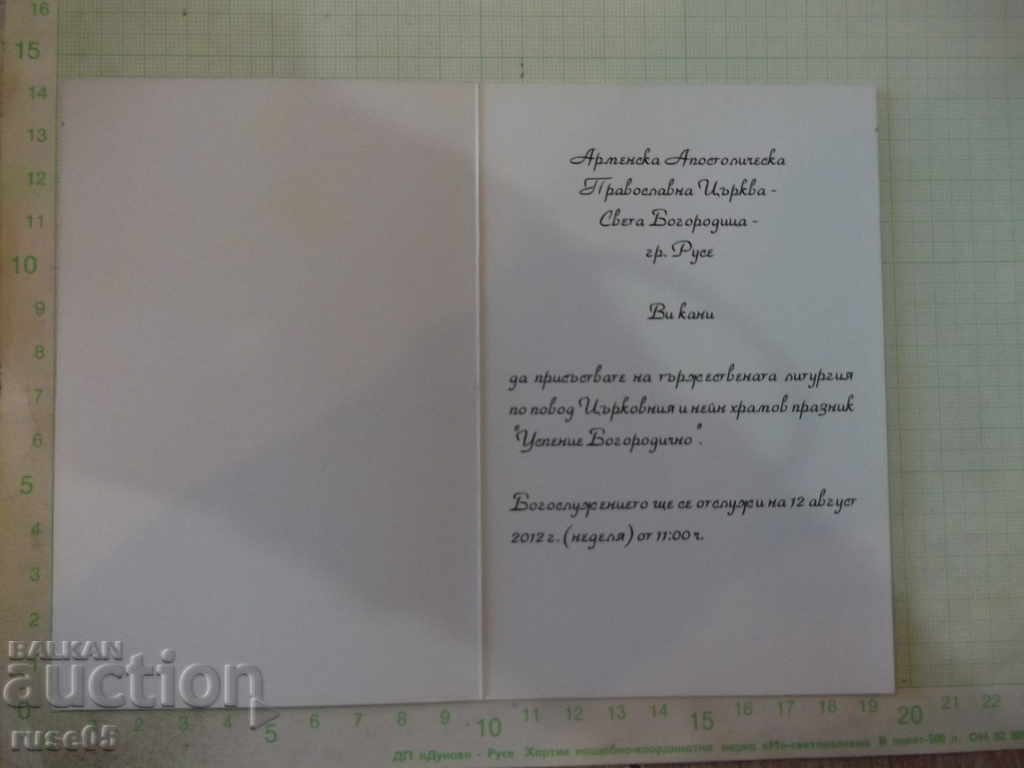 Арменска Апостолическа
Православна Църква -
Света Богородица -
гр. Русе
Ви кани
да присъствате на тържествената литургия
по повод Църковния и неин храмов празник
"Успение Богородично".
Богослужението ще се отслужи на 12 август
2012 г. (неделя) от 11:00 ч.
16
15
14
13
12
11
10
9
8
7
6
5
4
3
2
0
1 2 3 4 5 6 7 8 9 10 11 12 13 14 15 16 17 18 19 20 21 22
BALKAN
auction
ruse05
ДП «Дунав» - Русе Хартия мащабно-координатна марка